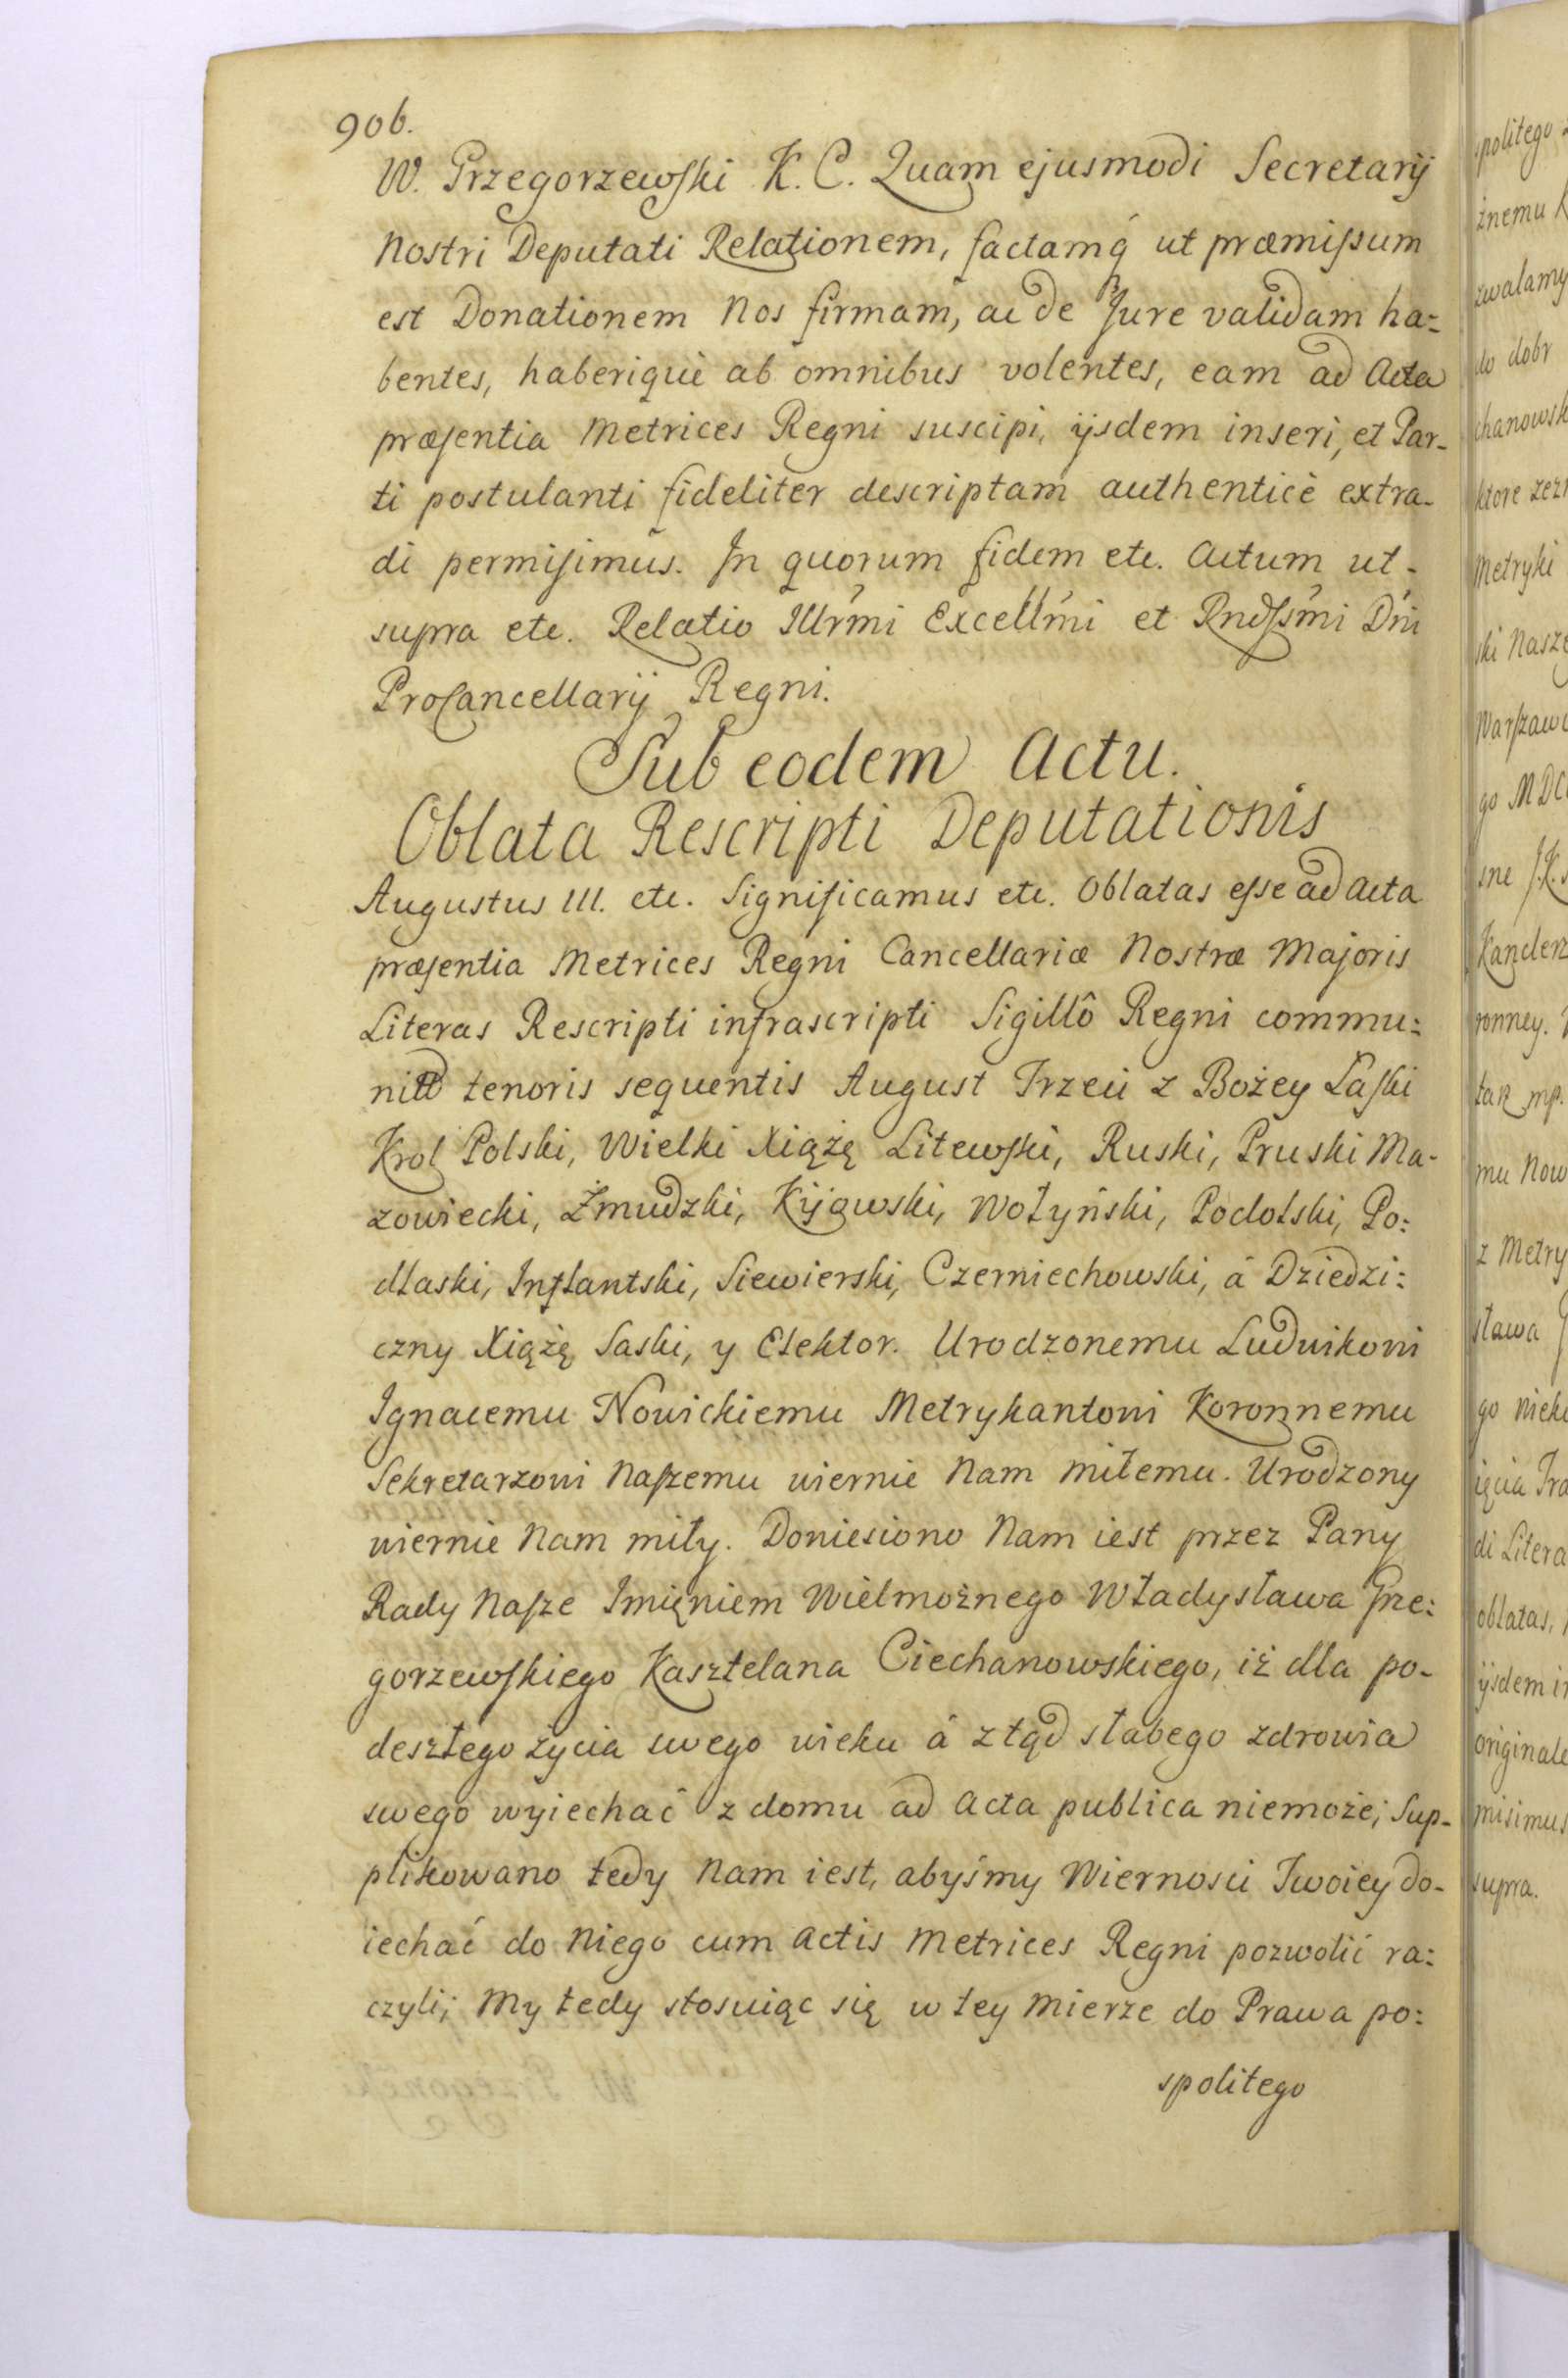 906.
W. Grzegorzewski K. C. Quam ejusmodi Secretarij
Nostri Deputati Relationem, factamq́ ut præmissum
est Donationem Nos firmam, ac de Jure validam ha=
bentes, haberiquè ab omnibus volentes, eam ad Acta
præsentia Metrices Regni suscipi, ijsdem inseri, et Par-
ti postulanti fideliter descriptam authenticè extra-
di permisimus. In quorum fidem etc. Actum ut-
supra etc. Relatio Illrmi Excellmi et Rndssmi Dni
ProCancellarij Regni.
Sub eodem Actu.
Oblata Rescripti Deputationis
Augustus III. etc. Significamus etc. Oblatas esse ad Acta
præsentia Metrices Regni Cancellariæ Nostræ Majoris
Literas Rescripti infrascripti Sigillô Regni commu=
nitô tenoris sequentis August Trzeci z Bożey Łaski
Krol Polski, Wielki Xiążę Litewski, Ruski, Pruski Ma-
zowiecki, Żmudzki, Kijowski, Wołyński, Podolski, Po=
dlaski, Inflantski, Siewierski, Czerniechowski, á Dziedzi=
czny Xiążę Saski, y Elektor. Urodzonemu Ludwikowi
Ignacemu Nowickiemu Metrykantowi Koronnemu
Sekretarzowi Naszemu wiernie Nam miłemu. Urodzony
wiernie Nam miły. Doniesiono Nam iest przez Pany
Rady Nasze Imięniem Wielmożnego Władysława Grze=
gorzewskiego Kasztelana Ciechanowskiego, iż dla po-
deszłego życia swego wieku á ztąd słabego zdrowia
swego wyiechać z domu ad Acta publica niemoże; Sup-
plikowano tedy Nam iest, abyśmy Wiernosci Twoiey do-
iechać do Niego cum Actis Metrices Regni pozwolić ra=
czyli; My tedy stosuiąc się w tey mierze do Prawa po=
spolitego